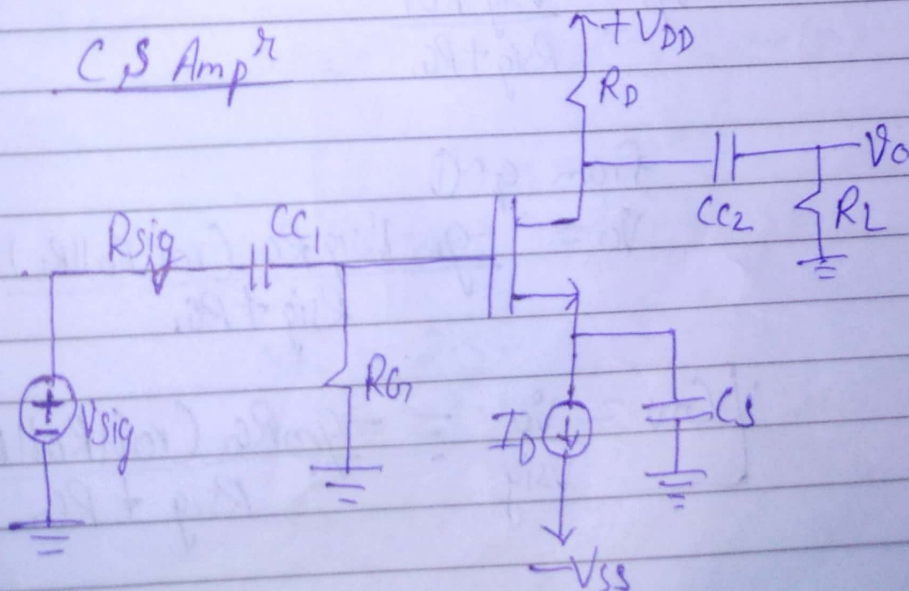 C.S Ampr
+VDD
RD
Vo
CC2
RL
Rsig
CC1
RG
Vsig
ID
CS
-VSS